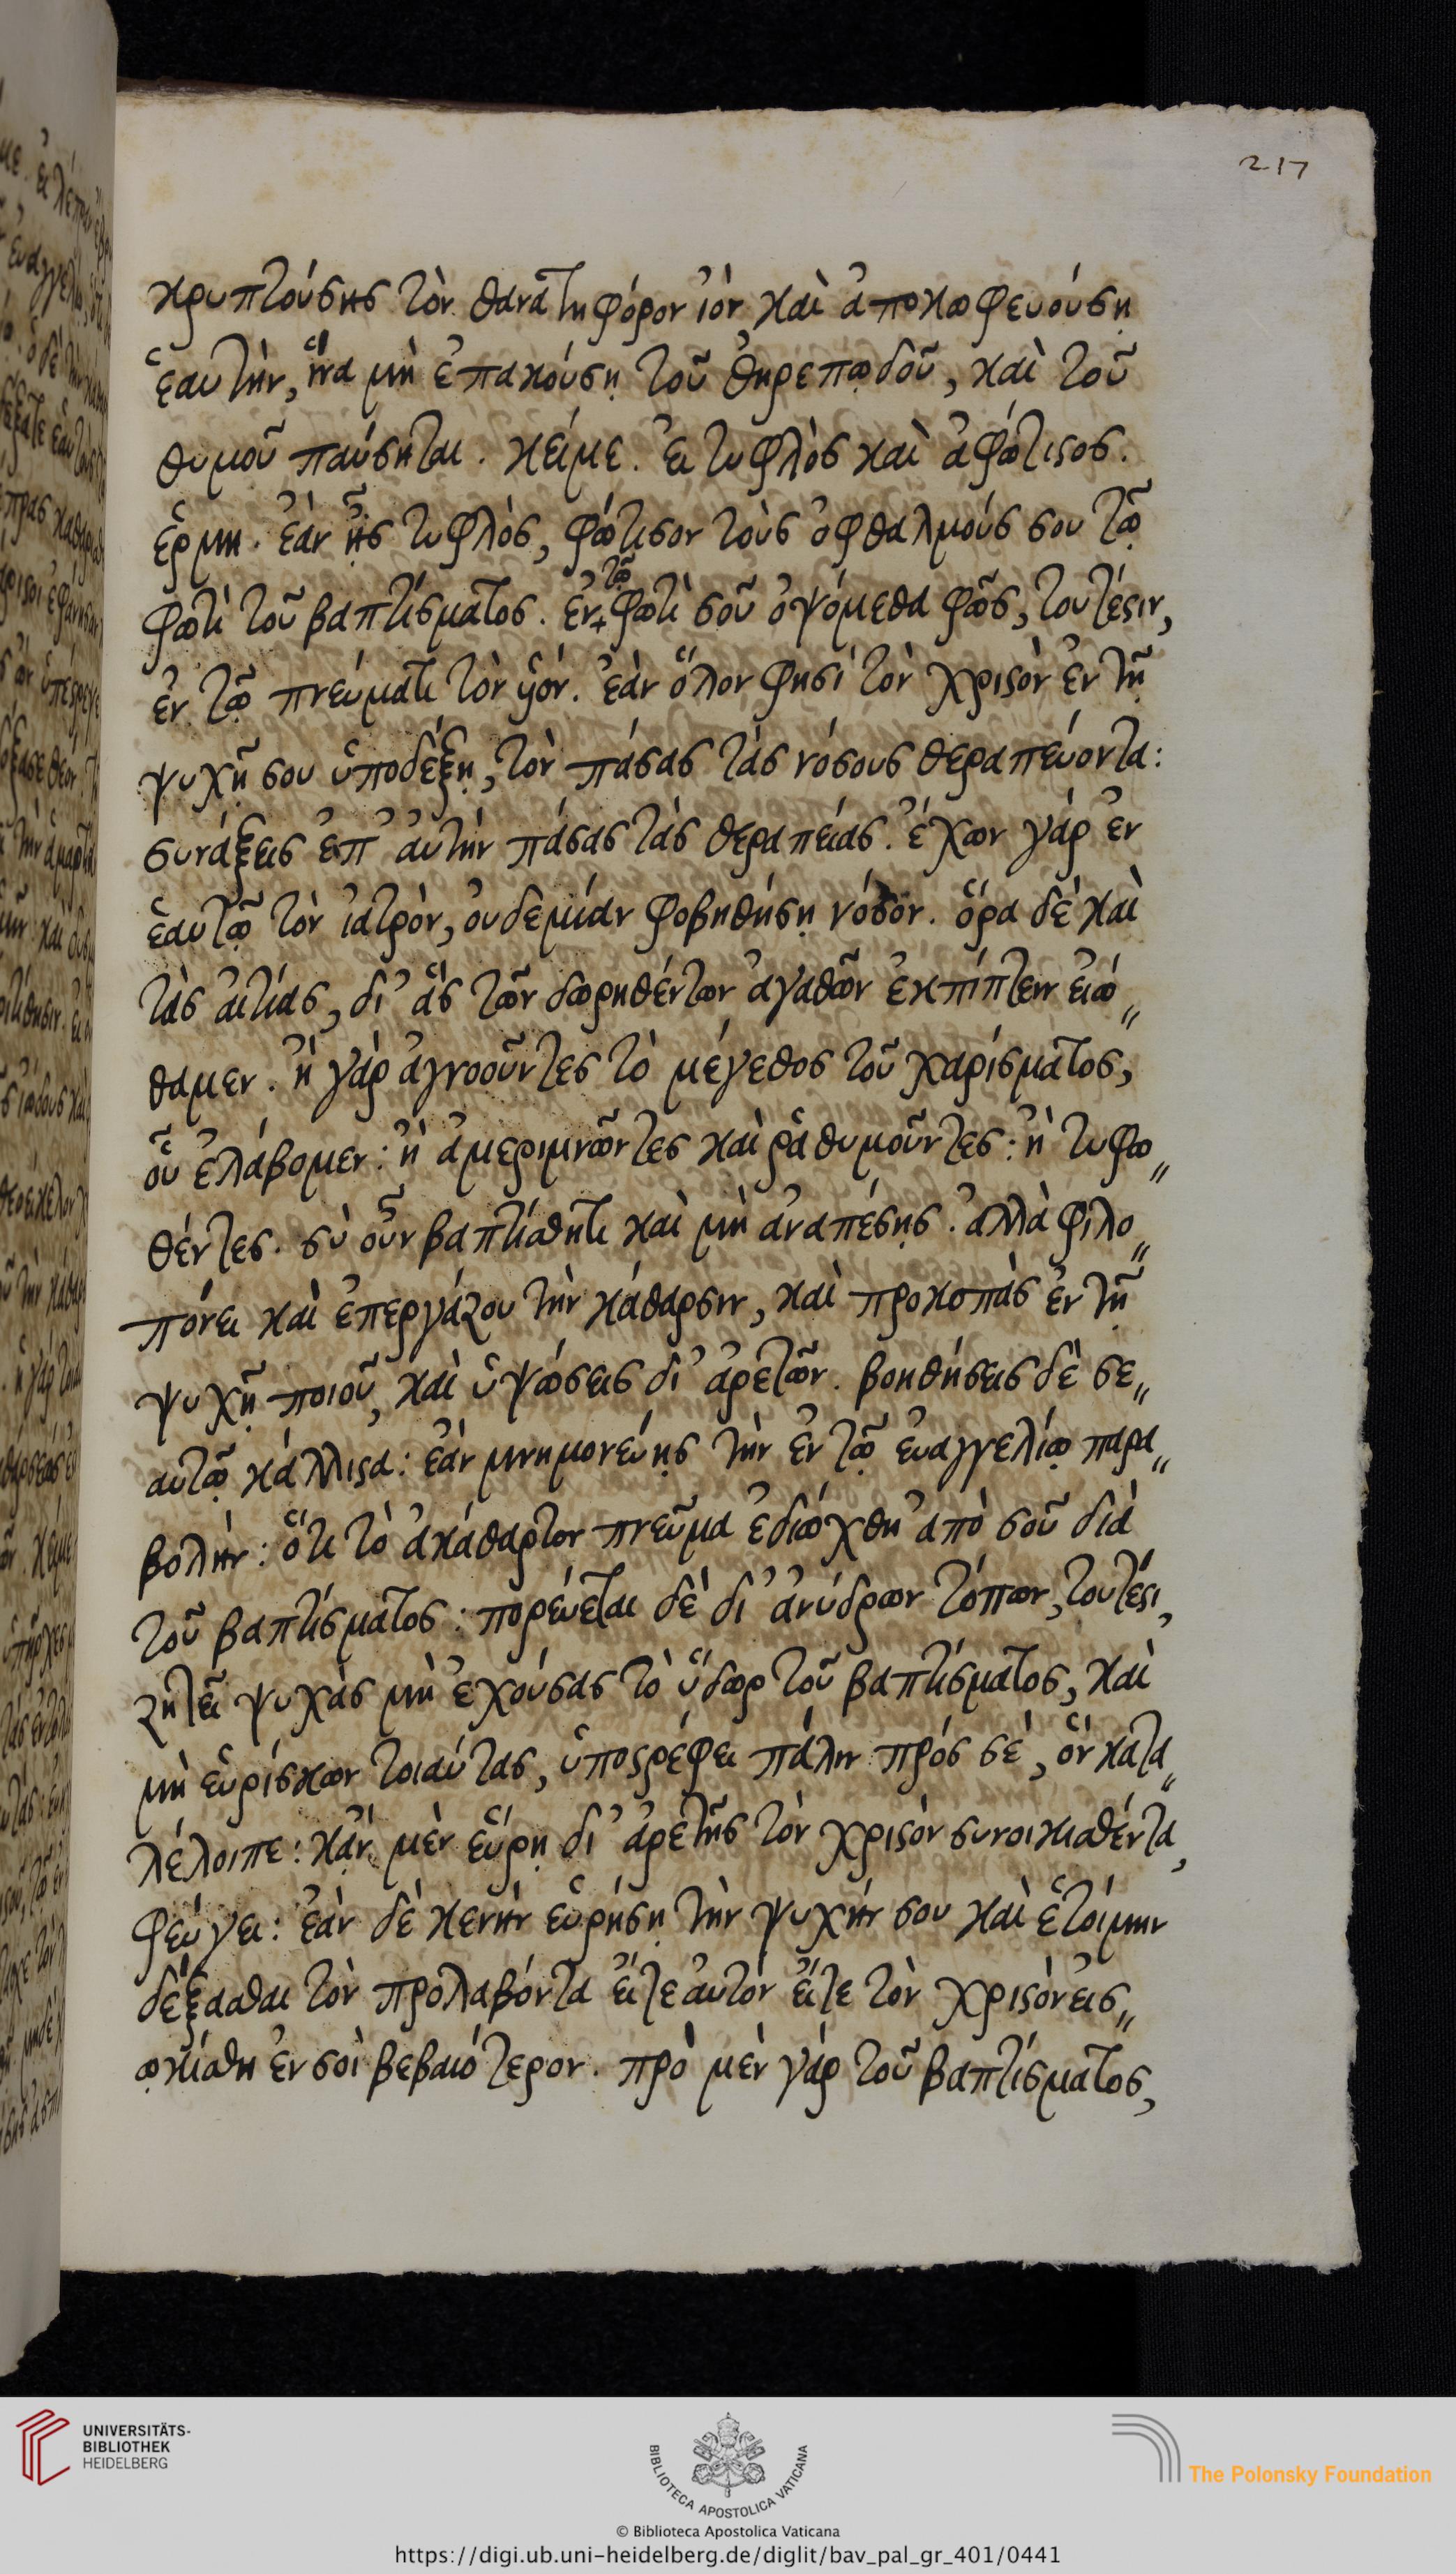 217
κρυπτούσης τὸν θανατηφόρον ἰόν, καὶ ἀποκωφευούση
ἑαυτὴν, ἵνα μὴ ἐπακούσῃ τοῦ θηρεπῳδοῦ, καὶ τοῦ
θυμοῦ παύσηται. κείμε. εἰ τυφλὸς καὶ ἀφώτιστος.
ἑρμη. ἐὰν ᾖς τυφλὸς, φώτισον τοὺς ὀφθαλμούς σου τῷ
φωτὶ τοῦ βαπτίσματος. ἐν τῷ φωτὶ σοῦ ὀψόμεθα φῶς, τουτέστιν,
ἐν τῷ πνεύματι τὸν υἱόν. ἐὰν ὅλον φησὶ τὸν χριστὸν ἐν τῇ
ψυχῇ σου ὑποδέξῃ, τὸν πάσας τὰς νόσους θεραπεύοντα:
συνάξεις ἐπ' αὐτὴν πάσας τὰς θεραπείας. ἔχων γάρ ἐν
ἑαυτῷ τὸν ἰατρὸν, οὐδεμίαν φοβηθήσῃ νόσον. ὅρα δὲ καὶ
τὰς αἰτίας, δι' ἃς τῶν δωρηθέντων ἀγαθῶν ἐκπίπτειν εἰώ„
θαμεν. ἢ γὰρ ἀγνοοῦντες τὸ μέγεθος τοῦ χαρίσματος,
οὗ ἐλάβομεν: ἢ ἀμεριμνῶντες καὶ ῥᾳθυμοῦντες: ἢ τυφω„
θέντες. σὺ οὖν βαπτίσθητι καὶ μὴ ἀναπέσῃς. ἀλλὰ φιλο„
πόνει καὶ ἐπεργάζου τὴν κάθαρσιν, καὶ προκοπὰς ἐν τῇ
ψυχῇ ποιοῦ, καὶ ὑψώσεις δι' ἀρετῶν. βοηθήσεις δὲ σε„
αυτῷ κάλλιστα: ἐὰν μνημονεύῃς τὴν ἐν τῷ εὐαγγελίῳ παρα„
βολήν: ὅτι τὸ ἀκάθαρτον πνεῦμα ἐδιώχθη ἀπὸ σοῦ διὰ
τοῦ βαπτίσματος: πορεύεται δὲ δι' ἀνύδρων τόπων, τουτέστι,
ζητεῖ ψυχὰς μὴ ἐχούσας τὸ ὕδωρ τοῦ βαπτίσματος, καὶ
μὴ εὑρίσκων τοιαύτας, ὑποστρέφει πάλιν πρός σέ, ὃν κατα„
λέλοιπε: κἂν μὲν εὕρῃ δι' ἀρετῆς τὸν χριστὸν συνοικισθέντα,
φεύγει: ἐὰν δὲ κενὴν εὑρήσῃ τὴν ψυχήν σου καὶ ἑτοίμην
δέξασθαι τὸν προλαβόντα εἴτε αὐτὸν εἴτε τὸν χριστόν εἰσ„
ῳκίσθη ἐν σοὶ βεβαιότερον. πρὸ μὲν γάρ τοῦ βαπτίσματος,
UNIVERSITÄTS-
BIBLIOTHEK
HEIDELBERG
BIBLIOTECA APOSTOLICA VATICANA
The Polonsky Foundation
© Biblioteca Apostolica Vaticana
https://digi.ub.uni-heidelberg.de/diglit/bav_pal_gr_401/0441